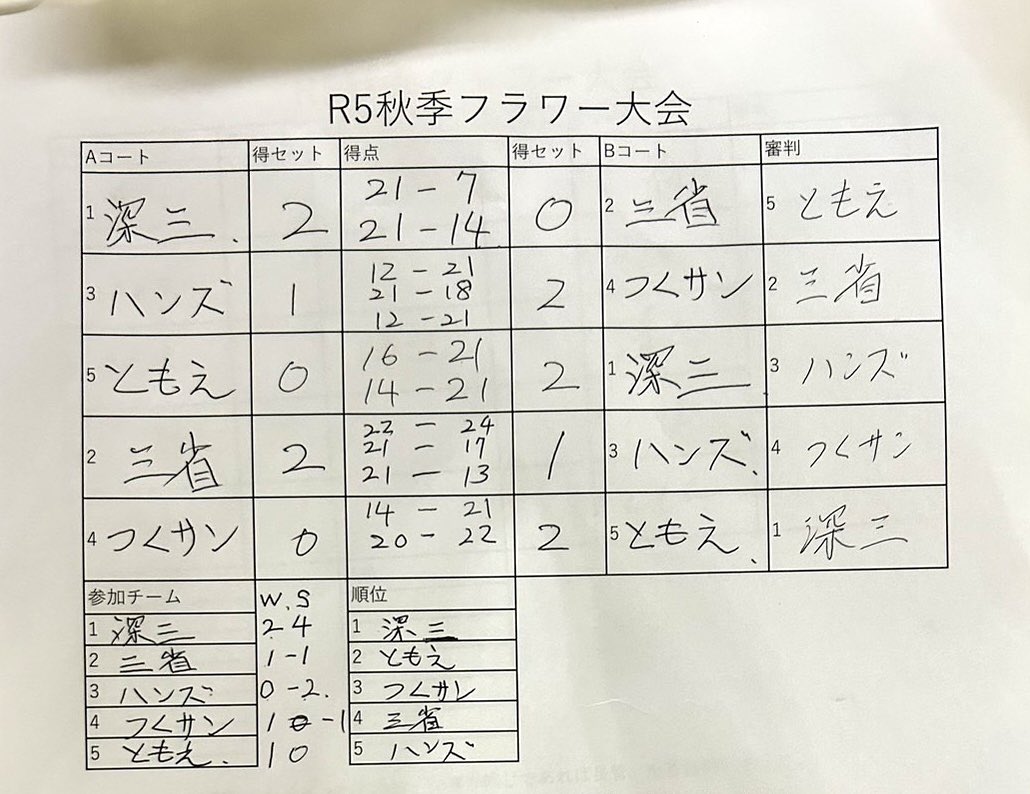 R5秋季フラワー大会
Aコート 得セット 得点 得セット Bコート 審判
1 深三. 2 21-7 0 2 三省 5 ともえ
21-14
3 ハンズ 1 12-21 2 4 つくサン 2 三省
21-18
12-21
5 ともえ 0 16-21 2 1 深三 3 ハンズ
14-21
2 三省 2 22-24 1 3 ハンズ. 4 つくサン
21-17
21-13
4 つくサン 0 14-21 2 5 ともえ. 1 深三
20-22
参加チーム W.S 順位
1 深三 2 4 1 深三
2 三省 1-1 2 ともえ
3 ハンズ 0-2. 3 つくサン
4 つくサン 1 -1 4 三省
5 ともえ. 1 0 5 ハンズ